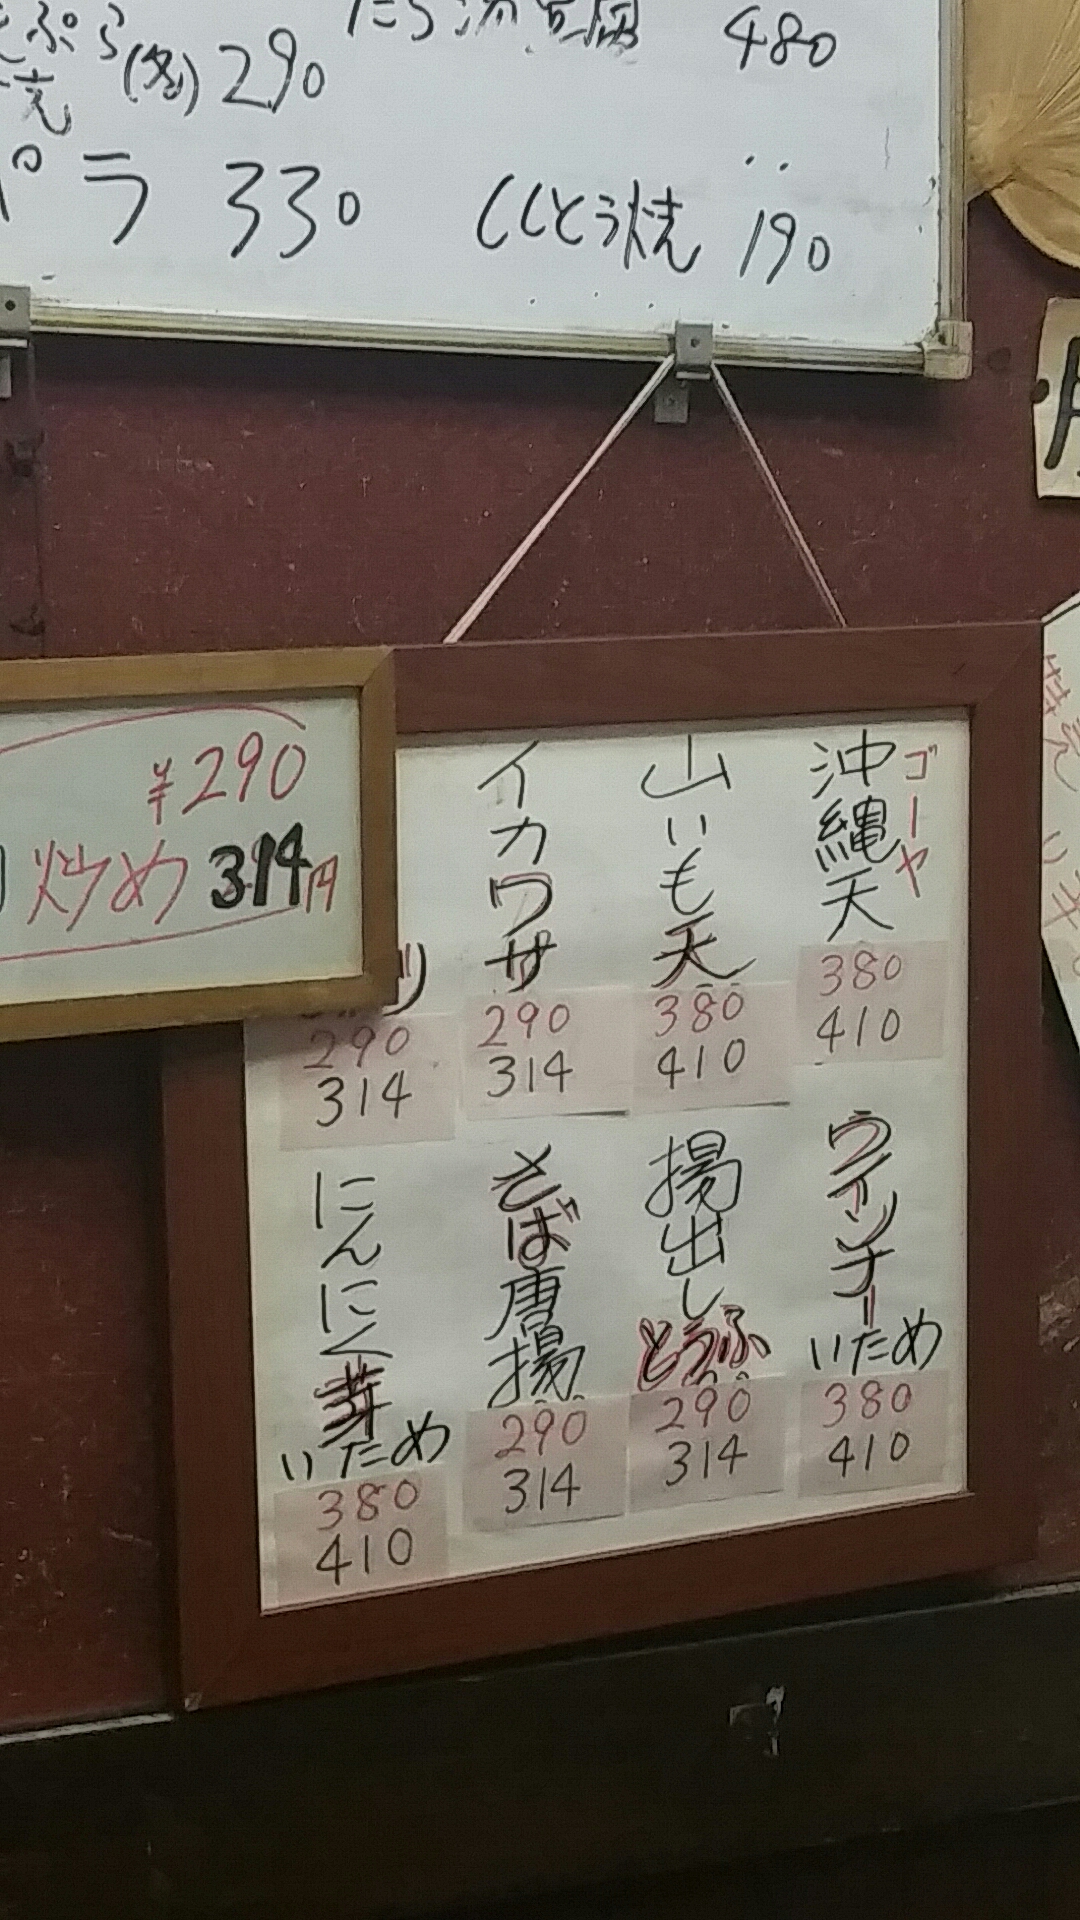 (冬) 290
480
ラ 330
ししとう焼 190
¥290
炒め 314円
ゴーヤ
沖縄天
380
410
山いも天
380
410
イカワサ
290
314
290
314
ウインナー
いため
380
410
揚出しとうふ
290
314
さば唐揚
290
314
にんにく芽
いため
380
410